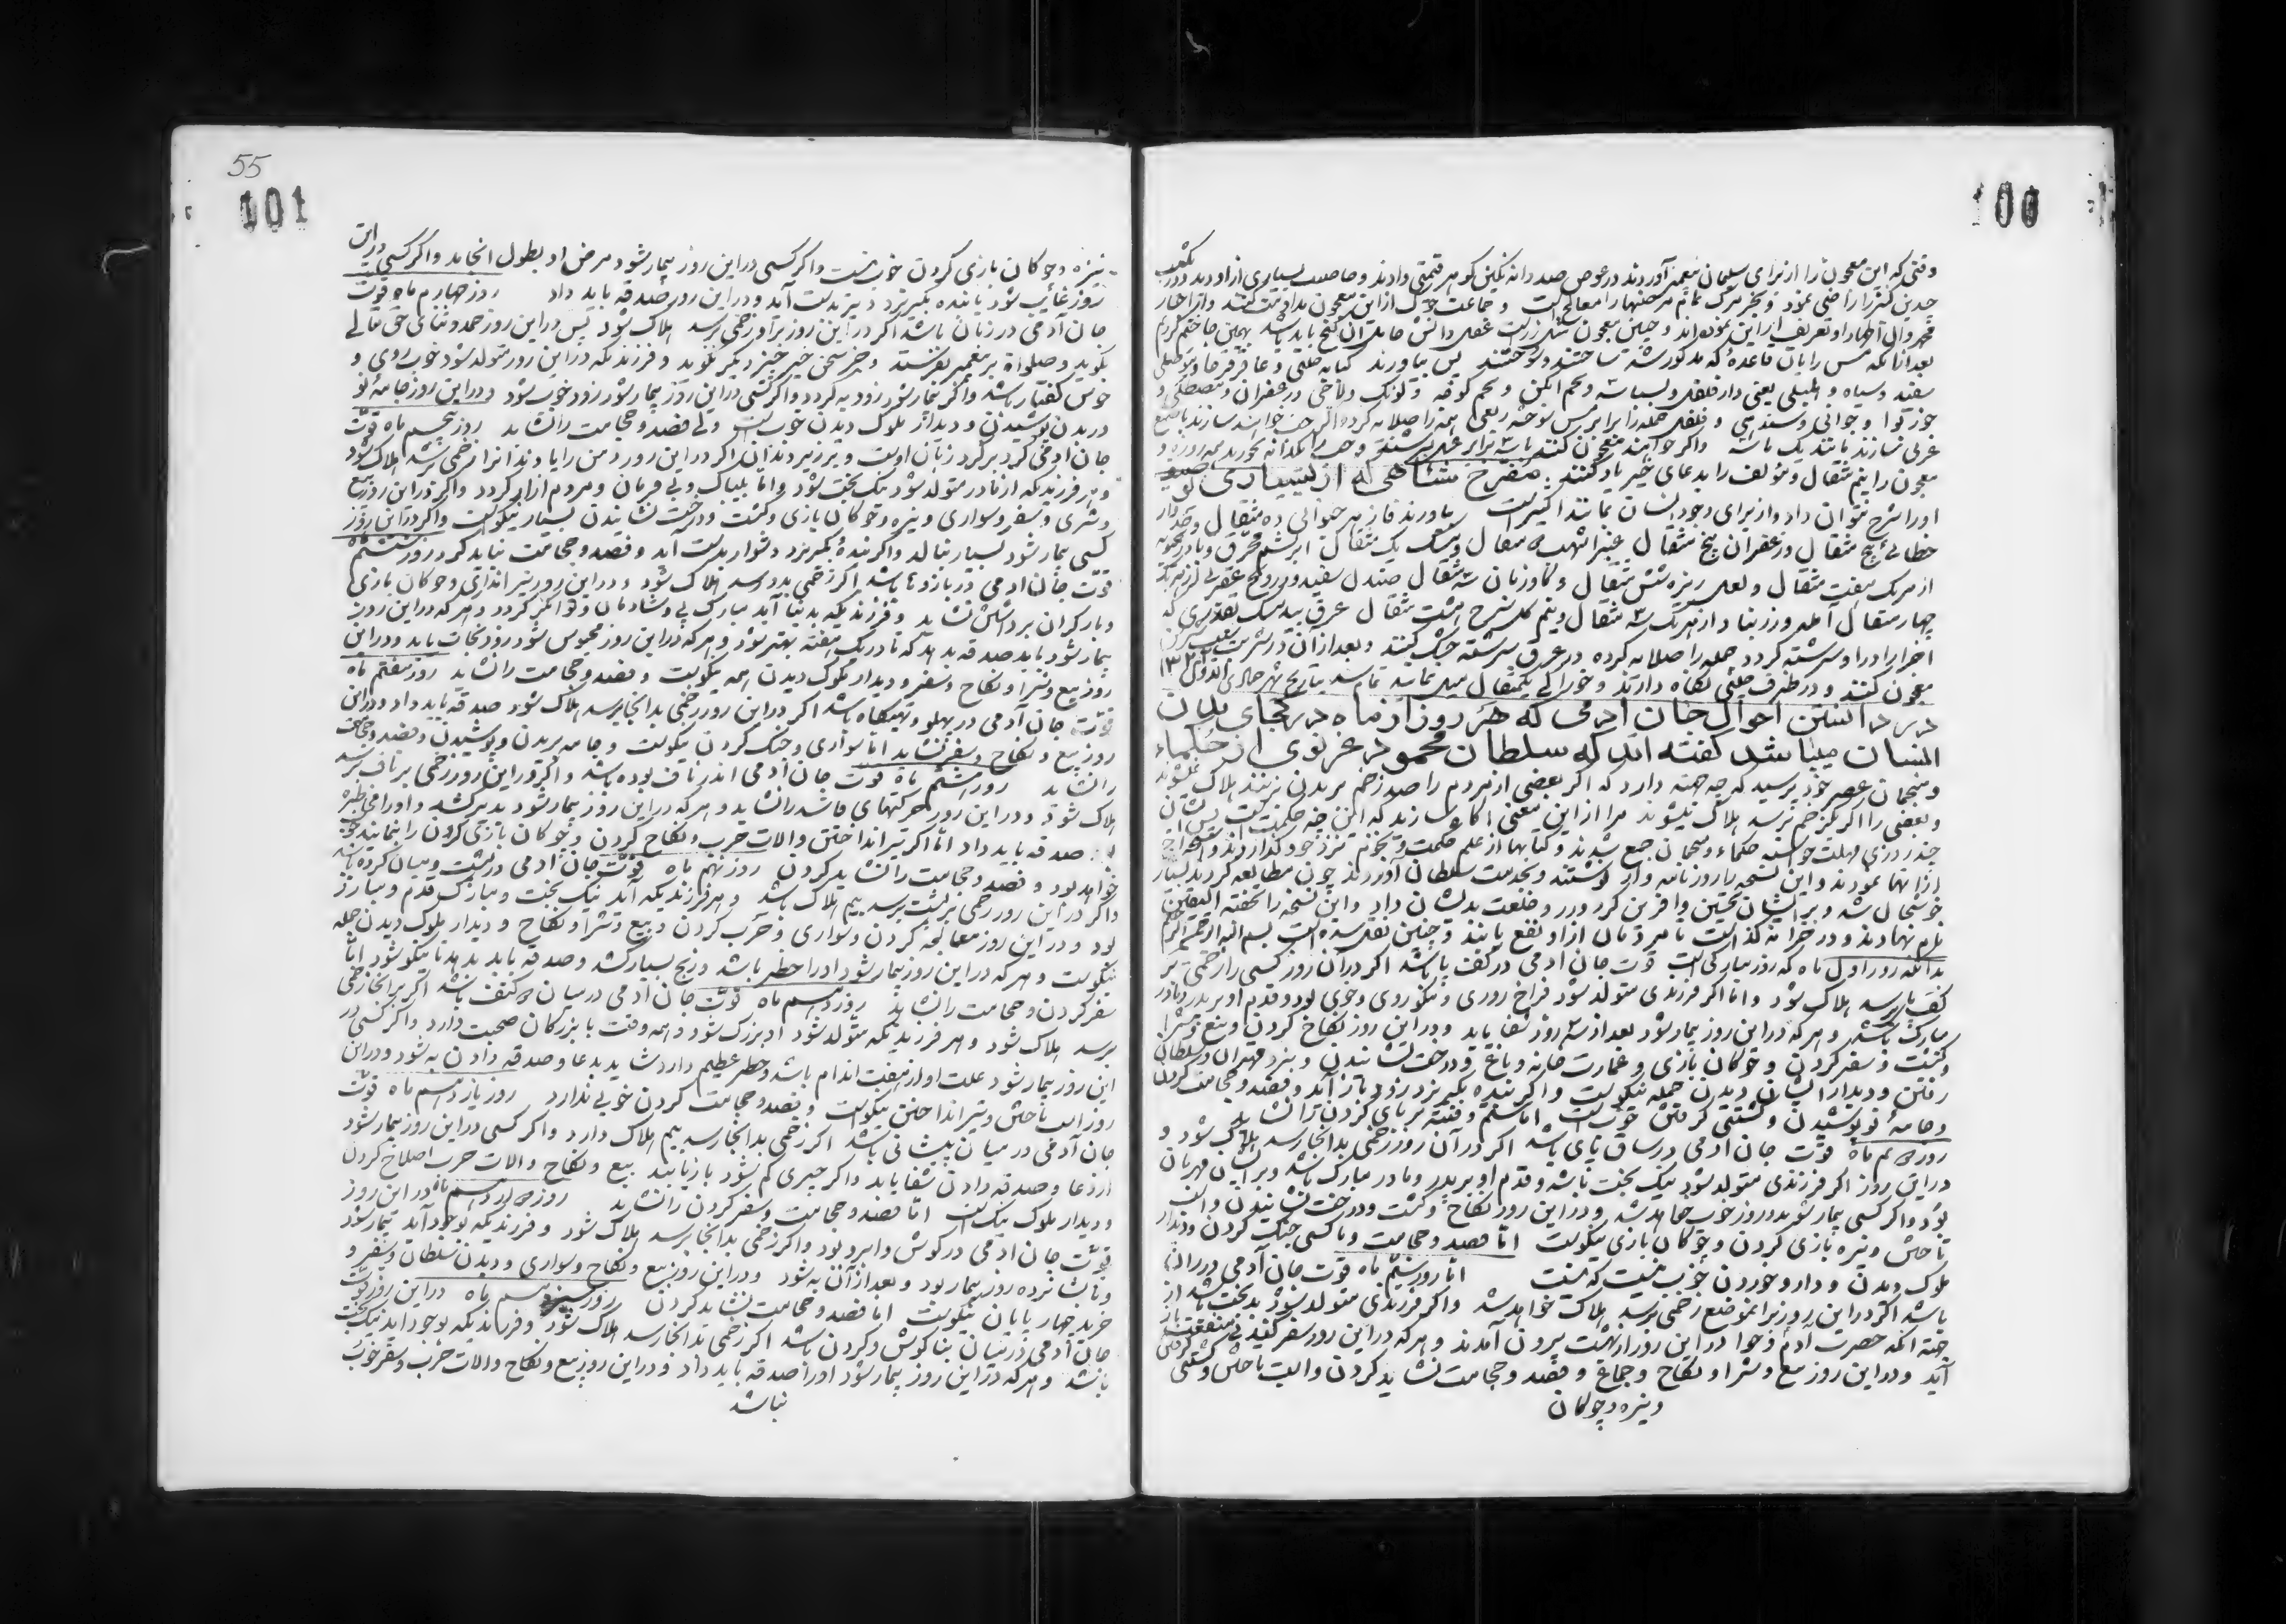 100
وقتی که این معجون را از برای سلیمان پیغمبر آوردند در عوض صد دانه نکین کوهر قیمتی دادند و خاصیت بسیاری از او دیدند
چندین کنیز را راضی نمود و بجز مرک تمام مرضها را معالج است و جماعت از این معجون مداومت کنند
بعد از آنکه مس را بآن قاعدهٔ که مذکور شد ساختند و سوختند پس بیاورند
سفید و سیاه و
عربی سازند مانند یک ماشه و اکر خواهند معجون کنند با سه برابر عسل بسرشند
معجون را نیم مثقال و مؤلف را بدعای خیر یاد کنند مفرح شاهی که از بسیاری
او را شرح نتوان داد و از برای وجود انسان مانند اکسیر است بیاورند فاز هر حیوانی ده مثقال و
خطائی پنج مثقال و زعفران پنج مثقال عنبر اشهب مثقال و مشک یک مثقال ابریشم محرق و
از هر یک هفت مثقال و لعل ریزه شش مثقال و کاوزبان سه مثقال صندل سفید و
چهار مثقال آمله و زرنباد از هر یک سه مثقال و نیم کل سرخ هشت مثقال عرق بیدمشک بقدری که
اجزا را در او سرشته کردد جمله را صلایه کرده در عرق سرشته خشک کنند و بعد از آن در شربت
معجون کنند و در ظرف چینی نکاه دارند و خوراک یکمثقال میل نمایند تمام شد بتاریخ شهر جمادی الاول
در دانستن احوال جان آدمی که هر روز از ماه در کجای بدن
انسان میباشد کفته اند که سلطان محمود غزنوی از حکماء
و منجمان عصر خود پرسید که چه جهت دارد که اکر بعضی از مردم را صد زخم بر بدن زنند هلاک نمیشوند
و بعضی را اکر یکزخم برسد هلاک میشوند مرا از این معنی آکاه سازند که این چه حکمت است پس ایشان
چند روزی مهلت خواسته حکماء و منجمان جمع شدند و کتابها از علم حکمت و نجوم نزد خود کذاردند و استخراج
از آنها نمودند و این نسخه را روزنامه وار نوشتند و بخدمت سلطان آوردند چون مطالعه کردند بسیار
خوشحال شد و بر ایشان تحسین و آفرین کرد و زر و خلعت بدیشان داد و این نسخه را تحفة الیقین
نام نهادند و در خزانه کذاشت تا مردمان از او نفع یابند و چنین نقل شده است بسم الله الرحمن الرحیم
بدانکه روز اول ماه که روز مبارکی است قوت جان آدمی در کف پا باشد اکر در آن روز کسی را زخمی بر
کف پا برسد هلاک شود و اما اکر فرزندی متولد شود فراخ روزی و نیکو روی و خوب بود و قدم او بر پدر و مادر
مبارک باشد و هر که در این روز بیمار شود بعد از سه روز شفا یابد و در این روز نکاح کردن و بیع و شرا
و کشت و سفر کردن و چوکان بازی و عمارت خانه و باغ و درخت نشاندن و بنزد مهتران و سلطان
رفتن و دیدار ایشان دیدن جمله نیکوست و اکر بنده بکریزد زود باز آید و فصد و حجامت کردن
و جامهٔ نو پوشیدن و کشتی کرفتن خوبست اما ستم و فتنه بر پای کردن را نشاید
روز دویم ماه قوت جان آدمی در ساق پای باشد اکر در آن روز زخمی بدانجا رسد هلاک شود و
در این روز اکر فرزندی متولد شود نیک بخت باشد و قدم او بر پدر و مادر مبارک باشد و بر ایشان مهربان
بود و اکر کسی بیمار شود دو روز خوب خواهد شد و در این روز نکاح و کشت و درخت نشاندن و اسب
تاختن و نیزه بازی کردن و چوکان بازی نیکوست اما فصد و حجامت و با کسی جنک کردن و دیدار
ملوک دیدن و دارو خوردن خوب نیست که نیست اما روز سیم ماه قوت جان آدمی در ران
باشد اکر در این روز بر آنموضع زخمی برسد هلاک خواهد شد و اکر فرزندی متولد شود بدبخت باشد از
جهة آنکه حضرت آدم و حوا در این روز از بهشت بیرون آمدند و هر که در این روز سفر کند بی منفعت باز
آید و در این روز بیع و شرا و نکاح و جماع و فصد و حجامت نشاید کردن و اسب تاختن و کشتی
و نیزه و چوکان
55
101
نیزه و چوکان بازی کردن خوبست و اکر کسی در این روز بیمار شود مرض او بطول انجامد و اکر کسی در این
روز غایب شود یا بنده بکریزد دیر بدست آید و در این روز صدقه باید داد روز چهارم ماه قوت
جان آدمی در زبان باشد اکر در این روز بر او زخمی برسد هلاک شود پس در این روز حمد و ثنای حق تعالی
بکوید و صلواة بر پیغمبر بفرستد و جز سخن خیر چیز دیکر نکوید و فرزندیکه در این روز متولد شود خوب روی و
خوش کفتار باشد و اکر بیمار شود زود به کردد و اکر کسی در این روز بیمار شود زود خوب شود و در این روز جامهٔ نو
در بدن پوشیدن و دیدار ملوک دیدن خوب است ولی فصد و حجامت را نشاید روز پنجم ماه قوت
جان آدمی کرد بر کرد زبان اوست و بر زیر دندان اکر در این روز دهن را یا دندان را زخمی رسد هلاک شود
و هر فرزندیکه از مادر متولد شود نیک بخت شود و اما بیباک و بی فرمان و مردم آزار کردد و اکر در این روز بیع
و شری و سفر و سواری و نیزه و چوکان بازی و کشت و درخت نشاندن بسیار نیکوست و اکر در این روز
کسی بیمار شود بسیار بنالد و اکر بندهٔ بکریزد دشوار بدست آید و فصد و حجامت نباید کرد روز ششم ماه
قوت جان آدمی در بازوها باشد اکر زخمی بدو رسد هلاک شود و در این روز تیر اندازی و چوکان بازی
و بار کران برداشتن نشاید و فرزندیکه بدنیا آید مبارک پی و شادمان و توانکر کردد و هر که در این روز
بیمار شود باید صدقه بدهد که تا در یک هفته بهتر شود و هر که در این روز محبوس شود زود نجات یابد و در این
روز بیع و شرا و نکاح و سفر و دیدار ملوک دیدن همه نیکوست و فصد و حجامت را نشاید روز هفتم ماه
قوت جان آدمی در پهلو و تهیکاه باشد اکر در این روز زخمی بدانجا برسد هلاک شود صدقه باید داد و در این
روز بیع و نکاح و سفر نشاید اما سواری و جنک کردن نیکوست و جامه بریدن و پوشیدن و فصد و حجامت
را نشاید روز هشتم ماه قوت جان آدمی اندر ناف بوده باشد و اکر در این روز زخمی بر ناف رسد
هلاک شود و در این روز حرکتهای فاشد را نشاید و هر که در این روز بیمار شود بدیر کشد و او را می خطره
صدقه باید داد اما اکر تیر انداختن و الات حرب و نکاح کردن و چوکان بازی کردن را نمایند خوب
خواهد بود و فصد و حجامت را نشاید کردن روز نهم ماه قوت جان آدمی در پشت و میان کرده باشد
و اکر در این روز زخمی بر پشت برسد بیم هلاک باشد و هر فرزندیکه آید نیک بخت و مبارک قدم و مبارز
بود و در این روز معالجه کردن و سواری و حرب کردن و بیع و شرا و نکاح و دیدار ملوک دیدن جمله
نیکوست و هر که در این روز بیمار شود او را خطر باشد و رنج بسیار کشد و صدقه باید بدهد تا نیکو شود اما
سفر کردن و حجامت را نشاید روز دهم ماه قوت جان آدمی در میان دو کتف باشد اکر بر آنجا زخمی
برسد هلاک شود و هر فرزندیکه متولد شود او بزرک شود و همه وقت با بزرکان صحبت دارد و اکر کسی در
این روز بیمار شود علت او از هفت اندام باشد و خطر عظیم دارد شاید بدعا و صدقه دادن به شود و در این
روز اسب تاختن و تیر انداختن نیکوست و فصد و حجامت کردن خوبی ندارد روز یازدهم ماه قوت
جان آدمی در میان پیشانی باشد اکر زخمی بدانجا رسد بیم هلاک دارد و اکر کسی در این روز بیمار شود
از دعا و صدقه دادن شفا یابد و اکر چیزی کم شود باز یابند بیع و نکاح و الات حرب اصلاح کردن
و دیدار ملوک نیک است اما فصد و حجامت و سفر کردن را نشاید روز دوازدهم ماه در این روز
قوت جان آدمی در کوش و ابرو بود و اکر زخمی بدانجا برسد هلاک شود و فرزندیکه بوجود آید بیمار شود
و تا شانزده روز بیمار بود و بعد از آن به شود و در این روز بیع و نکاح و سواری و دیدن سلطان و سفر و
خرید چهار پایان نیکوست اما فصد و حجامت نشاید کردن روز سیزدهم ماه در این روز قوت
جان آدمی در میان بناکوش و کردن باشد اکر زخمی بدانجا رسد هلاک شود و فرزندیکه بوجود آید نیک بخت
باشد و هر که در این روز بیمار شود او را صدقه باید داد و در این روز بیع و نکاح و الات حرب و سفر خوب
نباشد